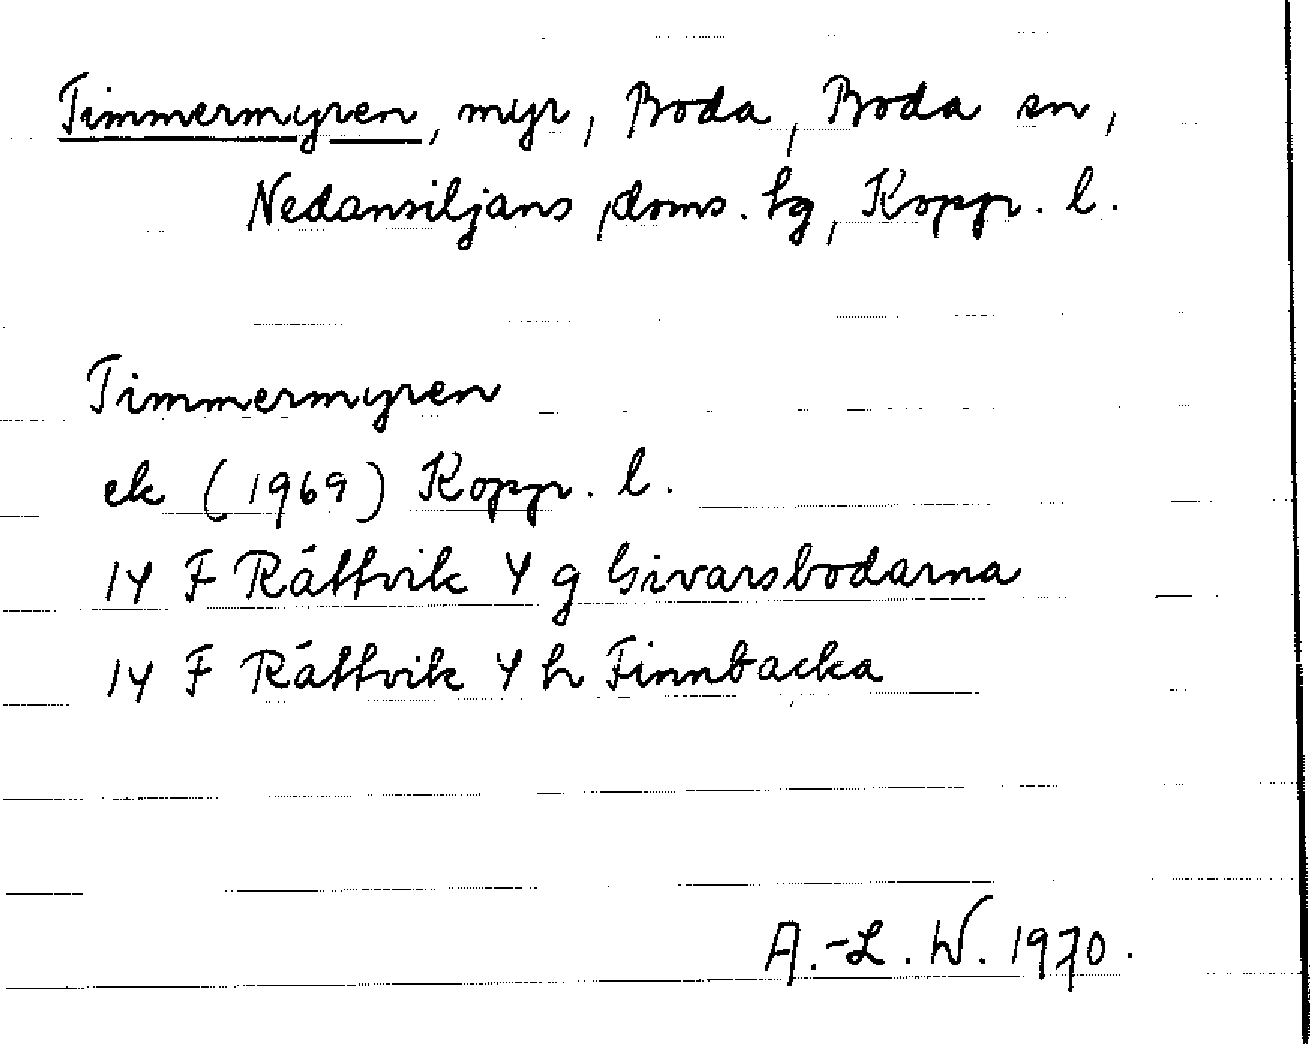 Timmermyren, myr, Boda, Boda sn,
Nedansiljans doms. hg, Koppr. l.
Timmermyren
ek (1969) Koppr. l.
14 F Rättvik 4 g Givarsbodarna
14 F Rättvik 4 h Finnbacka
A.-L. W. 1970.